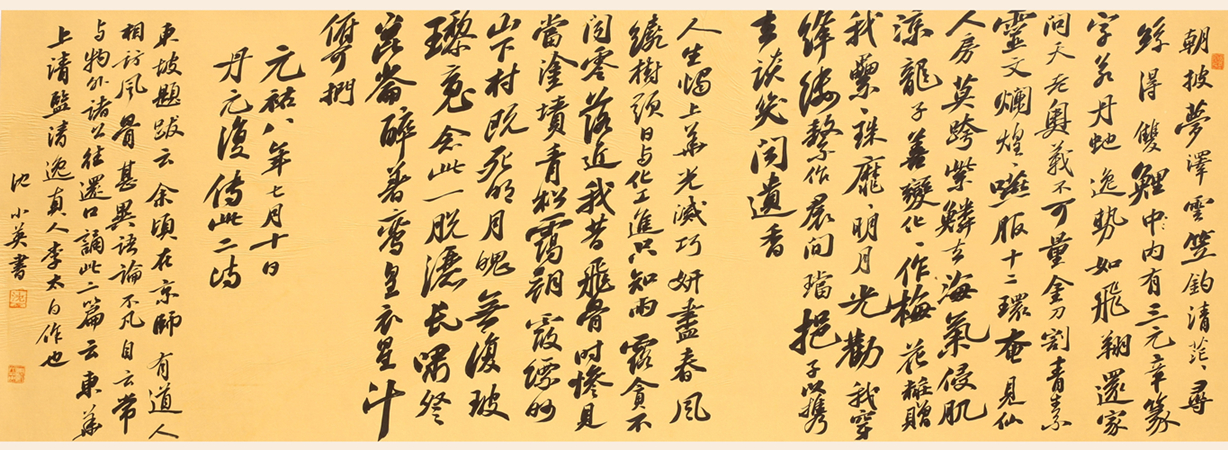 朝披夢澤雲笠釣清茫、尋
絲得雙鯉中、內有三元章篆
字若丹虵逸勢如飛翔還家
問天老奧義不可量金刀割青素
靈文爛煌、嚥服十二環奄見仙
人房莫跨紫鱗去海氣侵肌
涼龍子善變化、作梅花粧贈
我纍、珠靡、明月光勸我穿
絳縷繫作裙間璫挹子以攜
去談笑聞遺香
人生燭上華光滅巧妍盡春風
繞樹頭日与化工進只知雨露貪不
聞零落近我昔飛骨時慘見
當塗墳青松靄朝霞縹緲
山下村既死明月魄無復玻
瓈魂念此一脫灑長嘯登
崑崙醉著鸞皇衣星斗
俯可捫
元祐八年七月十日
丹元復傳此二詩
東坡題跋云余頃在京師有道人
相訪風骨甚異語論不凡自云常
与物外諸公往還口誦此二篇云東華
上清監清逸真人李太白作也
池小英書